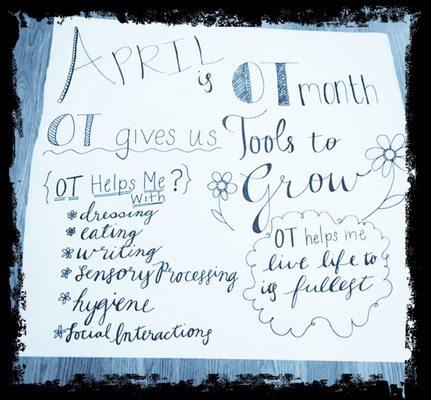 APRIL is OT month
OT gives us Tools to
Grow
{OT Helps Me?}
with
dressing
eating
writing
Sensory Processing
hygiene
Social Interactions
OT helps me
live life to
its fullest